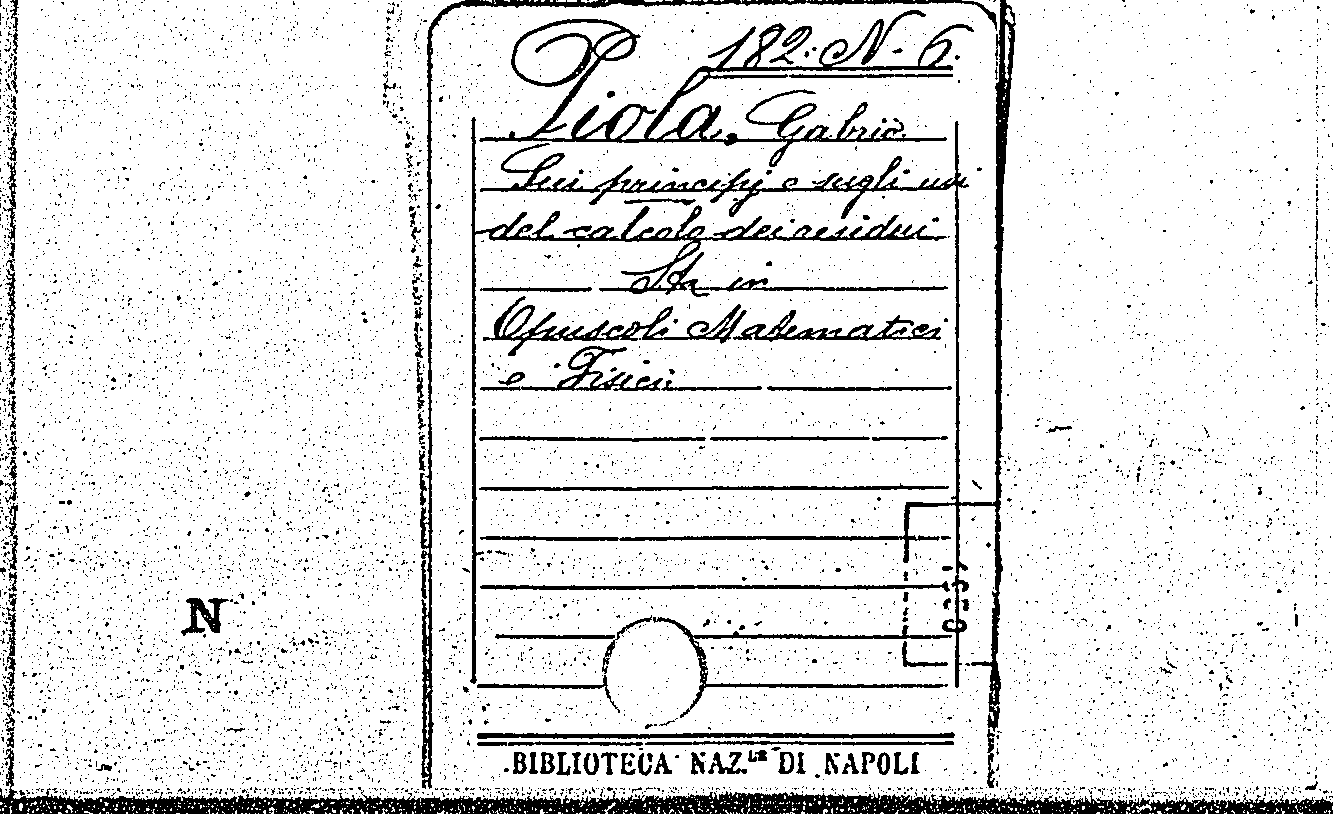 182. N. 6.
Piola, Gabrio.
Sui principj e sugli usi
del calcolo dei residui
Sta in
Opuscoli Matematici
e Fisici.
N
BIBLIOTECA NAZ.LE DI NAPOLI